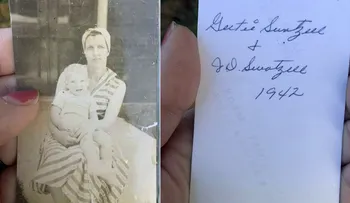 Gertie Swatzell
&
J.D. Swatzell
1942